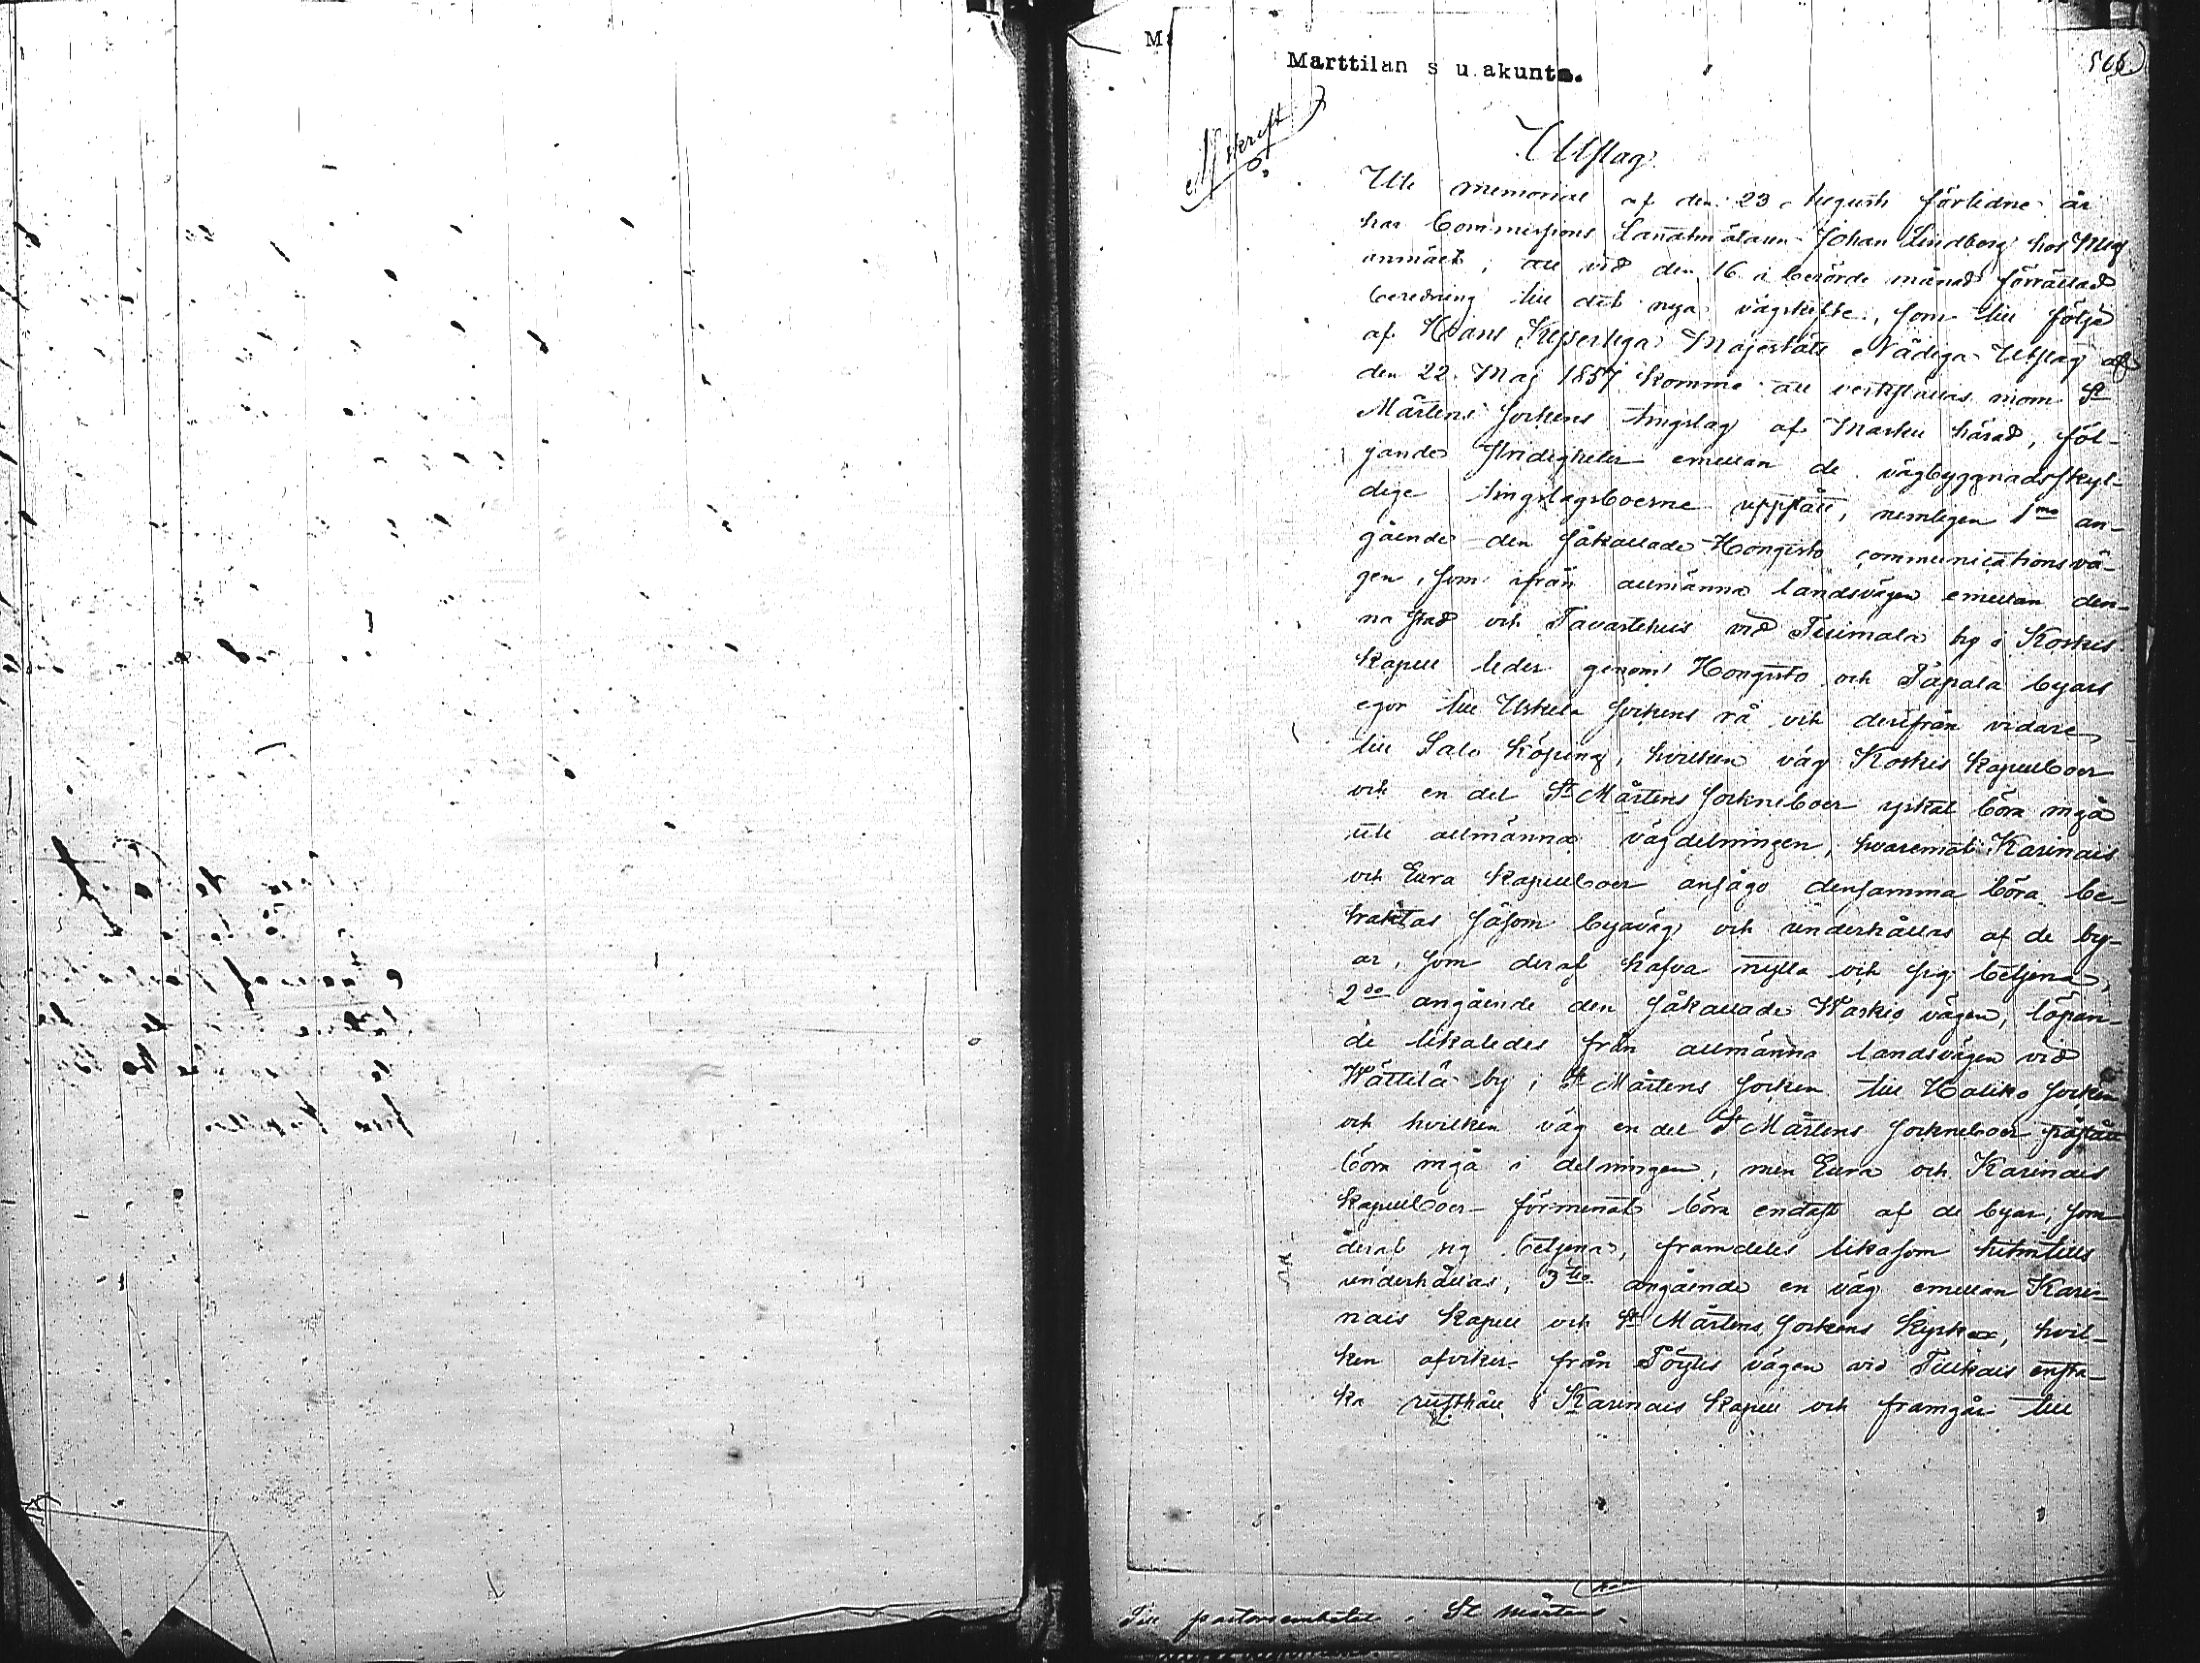 Marttilan s u.akunta.
566
Afskrift
Utslag
Uti memorial af den 23 Augusti förledne år
har Commissions Landtmätaren Johan Lindberg hos Mig
anmält, att vid den 16 i berörde månad förrättad
beredning till det nya vägskifte, som till följd
af Hans Kejserliga Majestäts Nådiga Utslag af
den 22 Maj 1857 komme att verkställas inom St
Mårtens sockens tingslag af Masku härad, föl-
jande stridigheter emellan de vägbyggnadsskyl-
dige tingslagsboerne uppstått, nemligen 1mo an-
gående den såkallade Hongisto communicationsvä-
gen, som ifrån allmänna landsvägen emellan den-
na stad och Tavastehus vid Tuimala by i Koskis
kapell leder genom Hongisto och Tapala byars
egor till Uskela sockens rå och derifrån vidare
till Salo köping, hvilken väg Koskis kapellboer
och en del St Mårtens sockneboer yrkat böra ingå
uti allmänna vägdelningen, hvaremot Karinais
och Eura kapellboer ansågo densamma böra be-
traktas såsom byaväg och underhållas af de by-
ar, som deraf hafva nytta och sig betjena,
2do angående den såkallade Waskio vägen, löpan-
de likaledes från allmänna landsvägen vid
Wättilä by i St Mårtens socken till Haliko socken
och hvilken väg en del St Mårtens sockneboer påstått
böra ingå i delningen, men Eura och Karinais
kapellboer förmenat böra endast af de byar, som
deraf sig betjena, framdeles likasom hitintills
underhållas, 3tio angående en väg emellan Kari-
nais kapell och St Mårtens sockens kyrka, hvil-
ken afviker från Töykis vägen vid Tiukais ensta-
ka rusthåll i Karinais kapell och framgår till
Till pastorsembetet i St Mårtens.